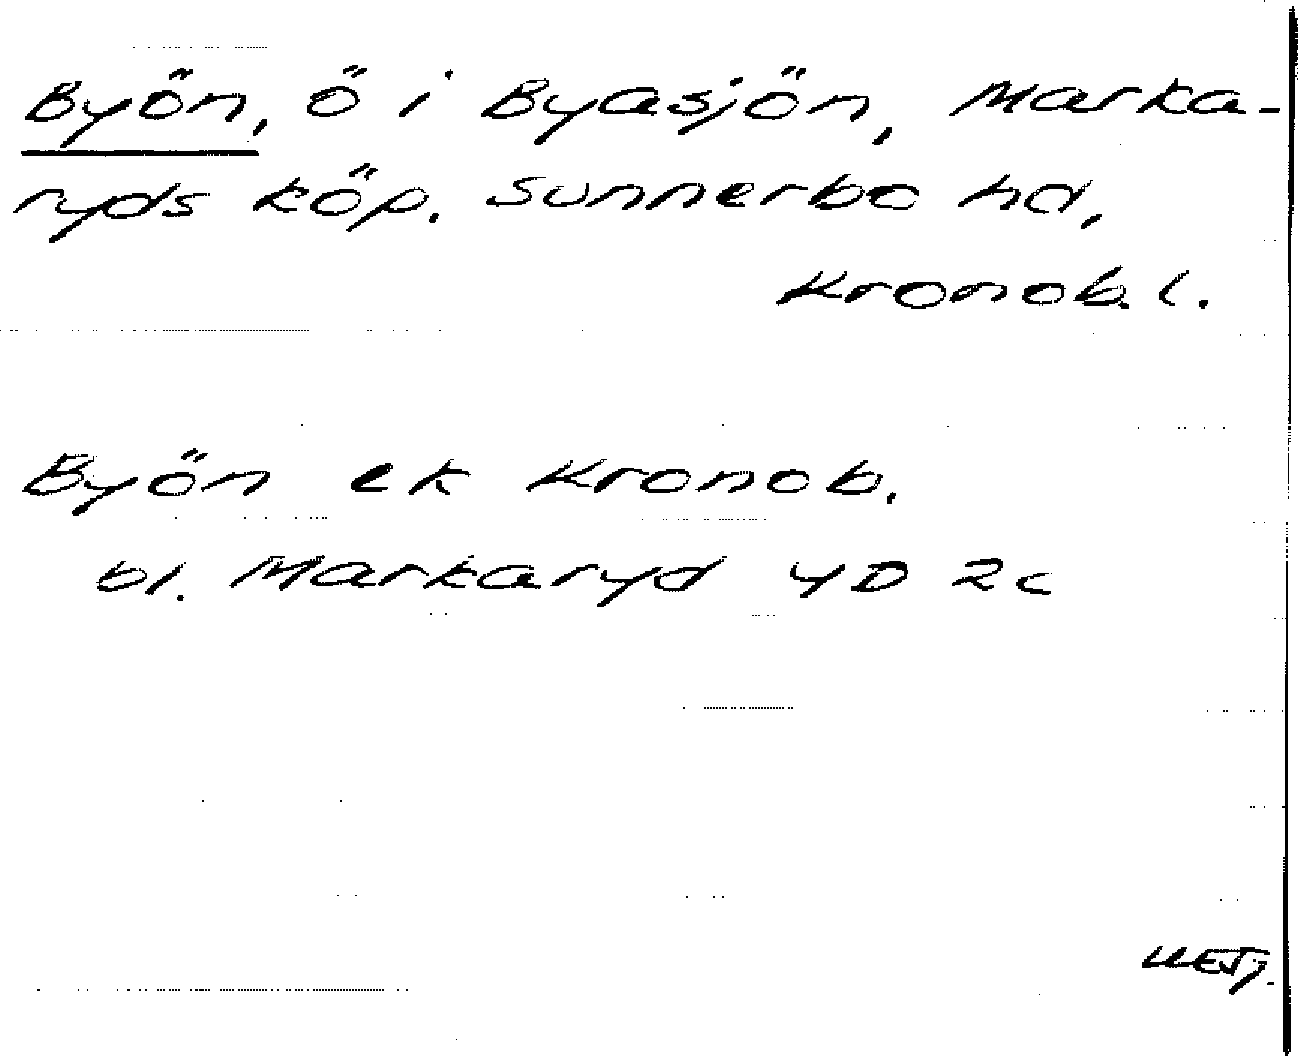 Byön, ö i Byasjön, Marka-
ryds köp. Sunnerbo hd,
Kronob. l.
Byön ek Kronob.
bl. Markaryd 4D 2c